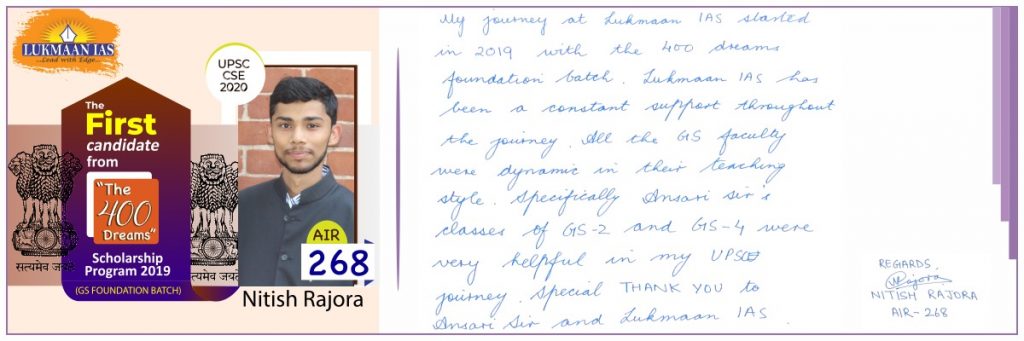 LUKMAAN IAS
...Lead with Edge...
The
First
candidate
from
"The
400
Dreams"
Scholarship
Program 2019
(GS FOUNDATION BATCH)
सत्यमेव जयते
सत्यमेव जयते
UPSC
CSE
2020
AIR
268
Nitish Rajora
My journey at Lukmaan IAS started
in 2019 with the 400 dreams
foundation batch. Lukmaan IAS has
been a constant support throughout
the journey. All the GS faculty
were dynamic in their teaching
style. Specifically Ansari Sir's
classes of GS-2 and GS-4 were
very helpful in my UPSC
journey. Special THANK YOU to
Ansari Sir and Lukmaan IAS.
REGARDS,
Rajora
NITISH RAJORA
AIR-268